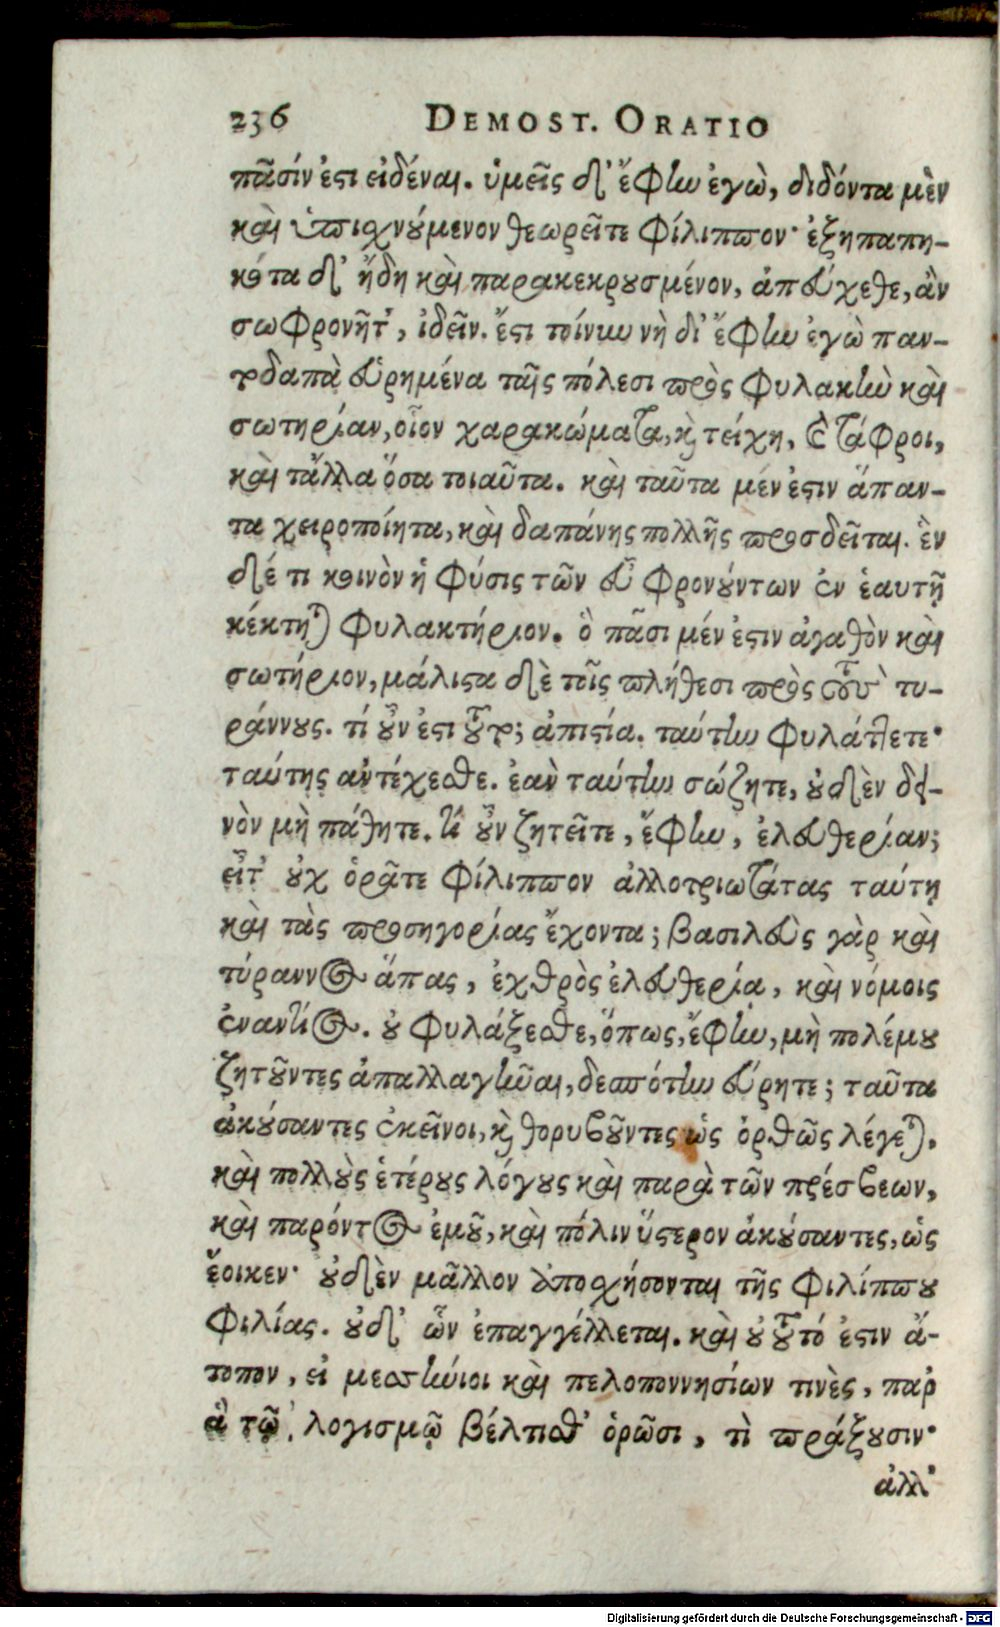 236 DEMOST. ORATIO
πᾶσίν ἐστι εἰδέναι. ὑμεῖς δ' ἔφην ἐγὼ, διδόντα μὲν
καὶ ὑπισχνούμενον θεωρεῖτε Φίλιππον· ἐξηπατη-
κότα δ' ἤδη καὶ παρακεκρουσμένον, ἀπεύχεσθε, ἂν
σωφρονῆτ', ἰδεῖν. ἔστι τοίνυν νὴ δί' ἔφην ἐγὼ παν-
τοδαπὰ εὑρημένα ταῖς πόλεσι πρὸς φυλακὴν καὶ
σωτηρίαν, οἷον χαρακώματα, καὶ τείχη, καὶ τάφροι,
καὶ τἄλλα ὅσα τοιαῦτα. καὶ ταῦτα μέν ἐστιν ἅπαν-
τα χειροποίητα, καὶ δαπάνης πολλῆς προσδεῖται. ἓν
δέ τι κοινὸν ἡ φύσις τῶν εὖ φρονούντων ἐν ἑαυτῇ
κέκτηται φυλακτήριον. ὃ πᾶσι μέν ἐστιν ἀγαθὸν καὶ
σωτήριον, μάλιστα δὲ τοῖς πλήθεσι πρὸς τοὺς τυ-
ράννους. τί οὖν ἐστι τοῦτο; ἀπιστία. ταύτην φυλάττετε·
ταύτης ἀντέχεσθε. ἐὰν ταύτην σώζητε, οὐδὲν δει-
νὸν μὴ πάθητε. τί οὖν ζητεῖτε, ἔφην, ἐλευθερίαν;
εἶτ' οὐχ ὁρᾶτε Φίλιππον ἀλλοτριωτάτας ταύτῃ
καὶ τὰς προσηγορίας ἔχοντα; βασιλεὺς γὰρ καὶ
τύραννος ἅπας, ἐχθρὸς ἐλευθερία, καὶ νόμοις
ἐναντίος. οὐ φυλάξεσθε, ὅπως, ἔφην, μὴ πολέμου
ζητοῦντες ἀπαλλαγῆναι, δεσπότην εὕρητε; ταῦτα
ἀκούσαντες ἐκεῖνοι, καὶ θορυβοῦντες ὡς ὀρθῶς λέγεται.
καὶ πολλοὺς ἑτέρους λόγους καὶ παρὰ τῶν πρέσβεων,
καὶ παρόντος ἐμοῦ, καὶ πάλιν ὕστερον ἀκούσαντες, ὡς
ἔοικεν· οὐδὲν μᾶλλον ἀποσχήσονται τῆς Φιλίππου
φιλίας. οὐδ' ὧν ἐπαγγέλλεται. καὶ οὐ τοῦτό ἐστιν ἄ-
τοπον, εἰ μεσσήνιοι καὶ πελοποννησίων τινὲς, παρ'
ἃ τῷ λογισμῷ βέλτισθ' ὁρῶσι, τὶ πράξουσιν·
ἀλλ'
Digitalisierung gefördert durch die Deutsche Forschungsgemeinschaft - DFG